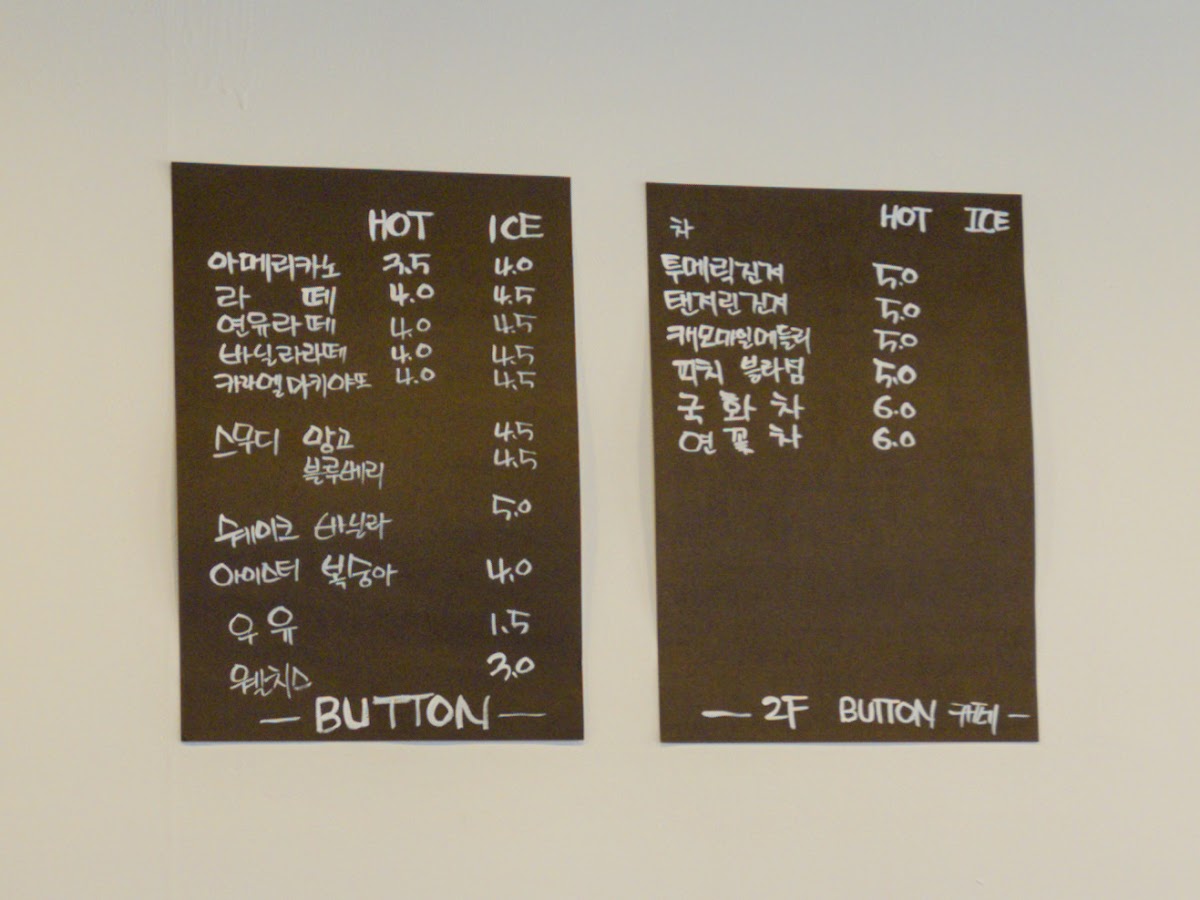 HOT ICE
아메리카노 3.5 4.0
라 떼 4.0 4.5
연유라떼 4.0 4.5
바닐라라떼 4.0 4.5
카라멜마키아또 4.0 4.5
스무디 망고 4.5
블루베리 4.5
쉐이크 바닐라 5.0
아이스티 복숭아 4.0
우유 1.5
웰치스 3.0
— BUTTON —
차 HOT ICE
투메릭진져 5.0
탠져린진져 5.0
캐모마일메들리 5.0
피치 블라썸 5.0
국화차 6.0
연꽃차 6.0
— 2F BUTTON 카페 —